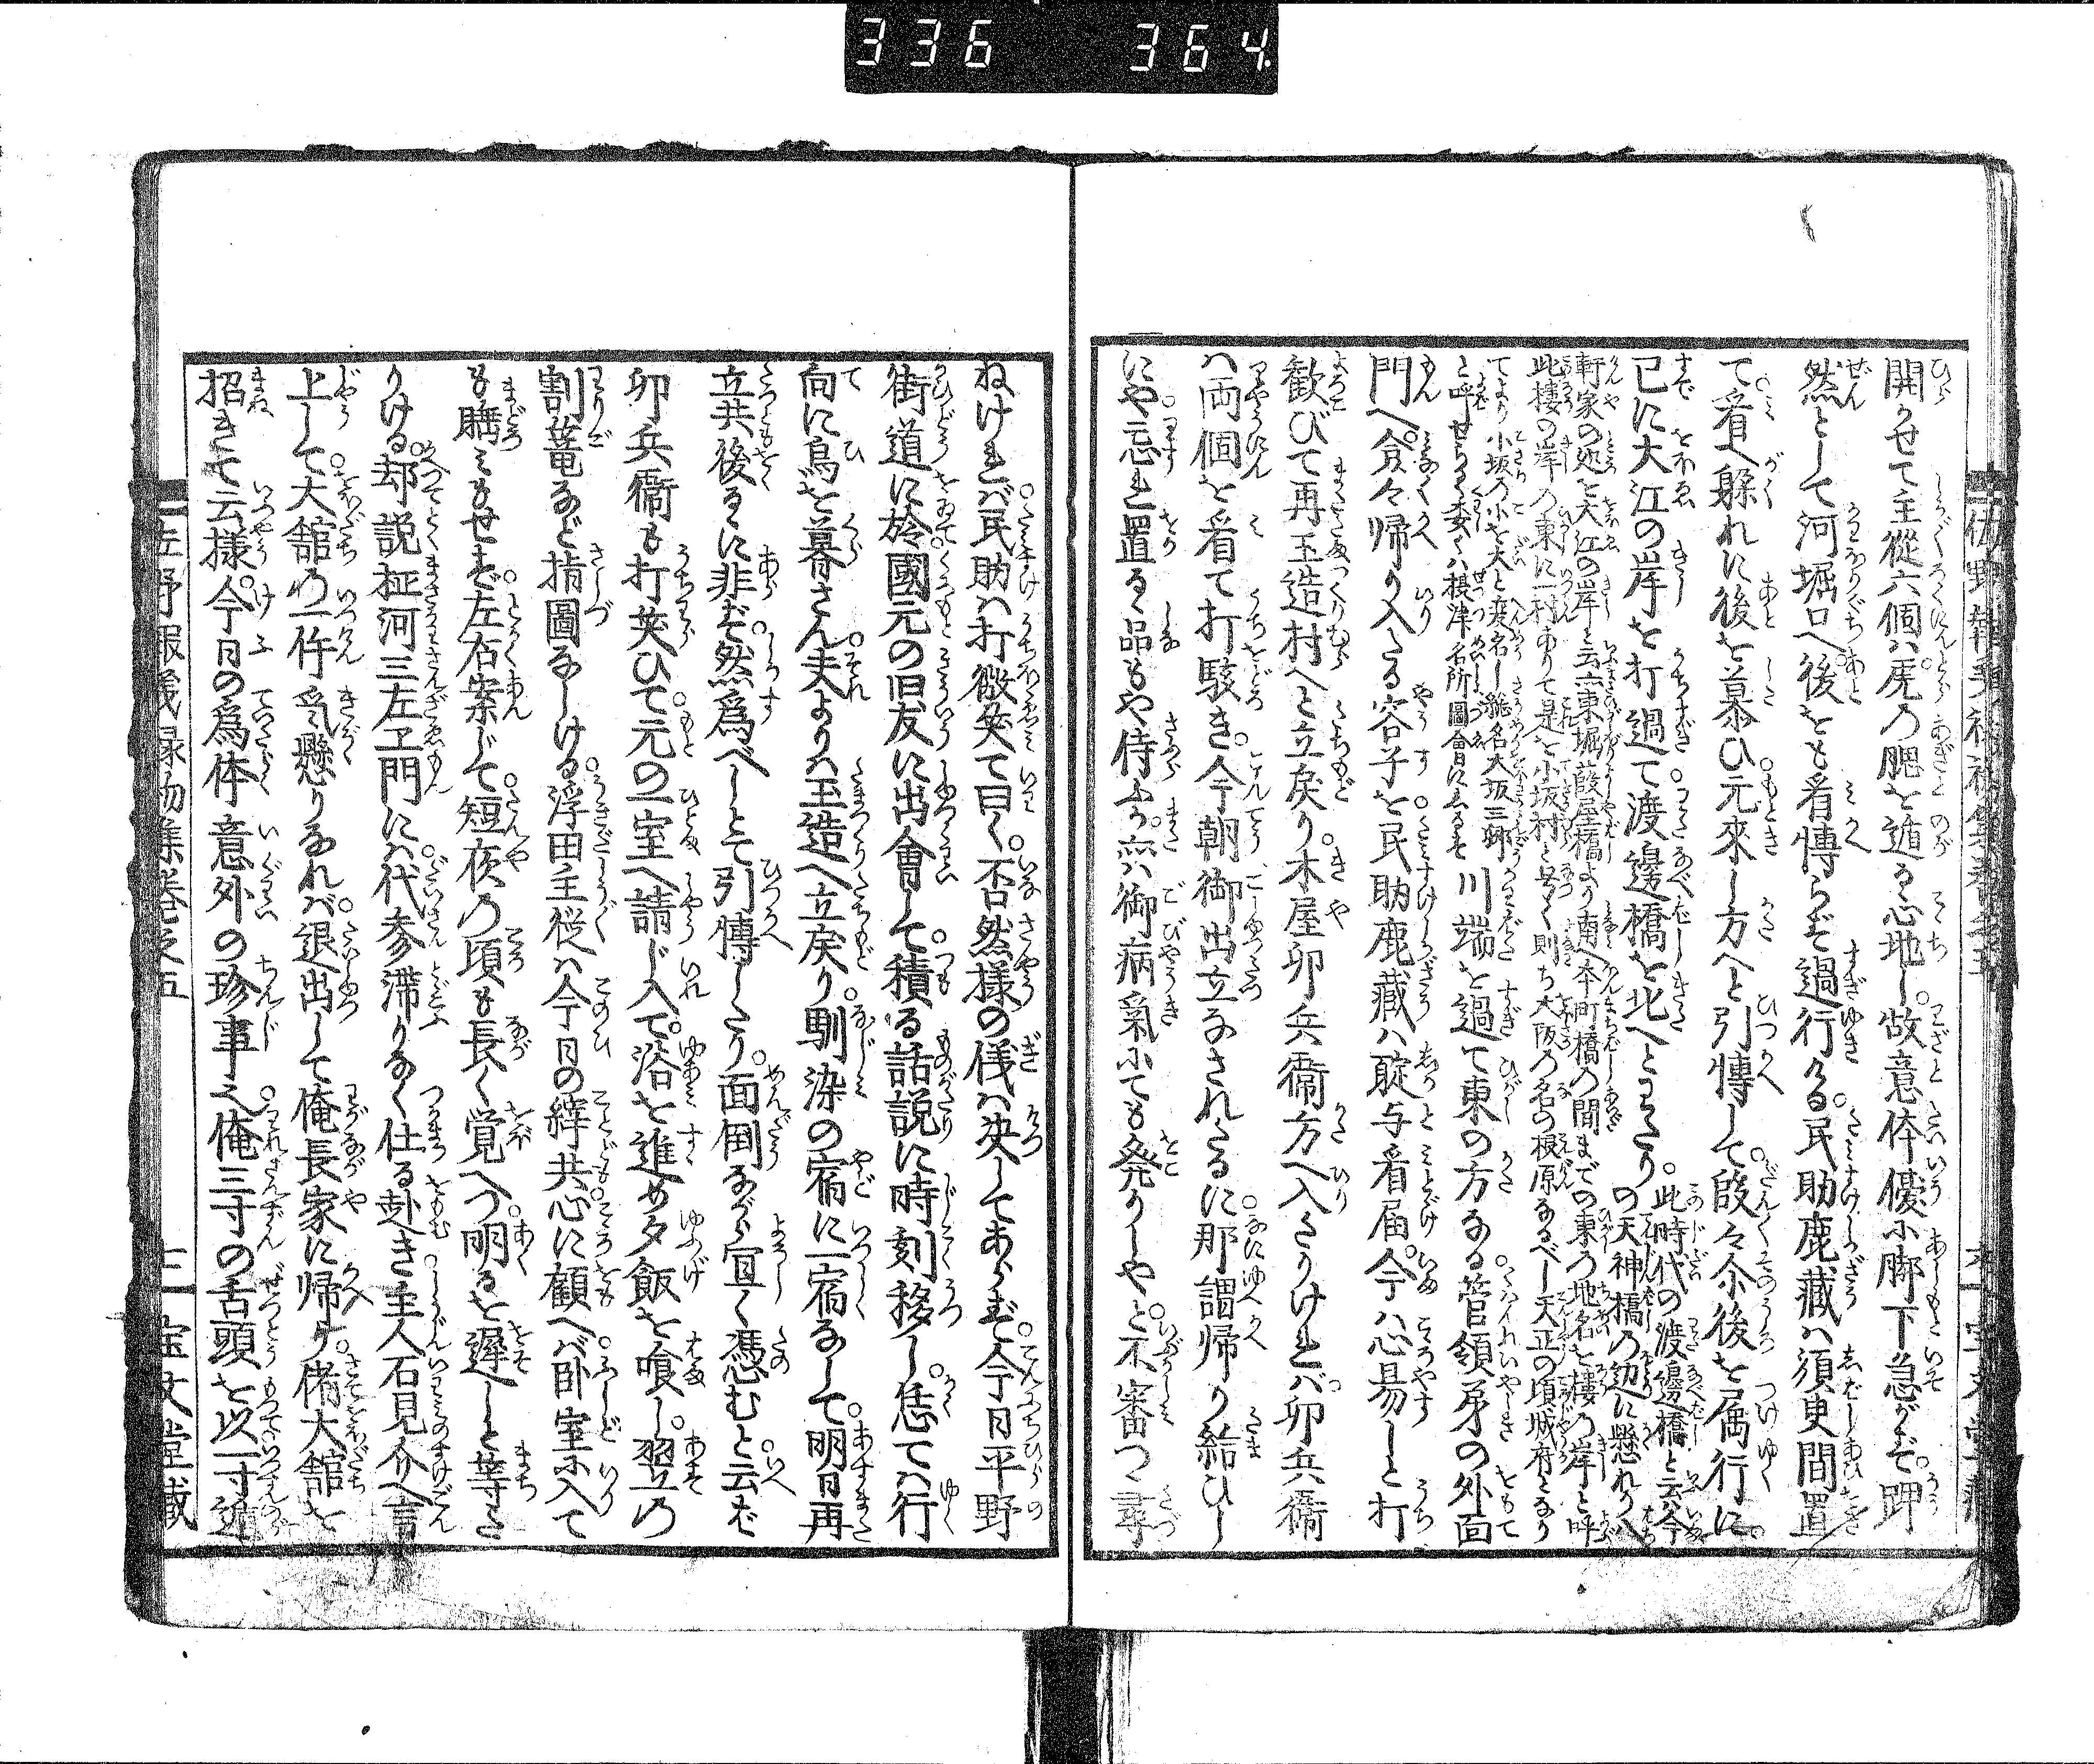 336 364
開かせて主從六個ハ虎の腮を遁るゝ心地し。故意体優に脚下急がず。呻
然として河堀口へ後をも看愽らず過行ける。民助鹿藏ハ須臾間置
て。看へ躱れに後を慕ひ元來し方へと引愽して。段々介後を属行に。
已に大江の岸を打過て。渡邊橋を北へとわたり。
此時代の渡邊橋と云ハ今
の天神橋の辺に懸れり八
軒家の処を大江の岸と云六東堀葭屋橋より南へ本町橋の間までの東の地名を樓の岸と呼
此樓の岸の東に一村ありて是を小坂村と号く則ち大阪の名の根原なるべし天正の頃城府となり
てより小坂の小を大と変名し総名大坂三郷
と呼せらる委くハ摂津名所圖會にあるを
川端を過て東の方なる。管領第の外面
門へ。僉々帰り入たる容子を。民助鹿藏ハ聢与看届。今ハ心易しと打
歓びて再玉造村へと立戻り。木屋卯兵衞方へ入たりけれバ。卯兵衞
ハ両個を看て打駭き。今朝御出立なされたるに。那謂帰り給ひし
にや。忘れ置る品もや侍ふか。亦ハ御病氣にても発りしやと。不審つゝ尋
ねけれバ。民助ハ打微笑て曰く。否然様の儀ハ决してあらず。今日平野
街道に於。國元の旧友に出會して。積る話説に時刻移し。恁てハ行
向に烏を暮さん。夫よりハ玉造へ立戻り。馴染の宿に一宿なして。明日再
立共後るゝに非ず。然爲べしとて引愽したり。面倒ながら宜く憑むと。云ば
卯兵衞も打笑ひて。元の一室へ請じ入て。浴を進め夕飯を喰し。翌の
割篭など指圖なしける。浮田主従ハ今日の縡共。心に顧へバ。卧室に入て
も睡みもせず。左右案じて。短夜の頃も長く覚へつ。明るを遲しと等た
りける。却説柾河三左エ門にハ。代参滞りなく仕る赴き。主人石見介へ言
上して。大舘の一件氣懸りなれバ。退出して俺長家に帰ケ。偖大舘を
招きて云樣。今日の爲体意外の珍事之。俺三寸の舌頭を以。一寸近
野報讐録初集卷之五
十一
宝文堂藏